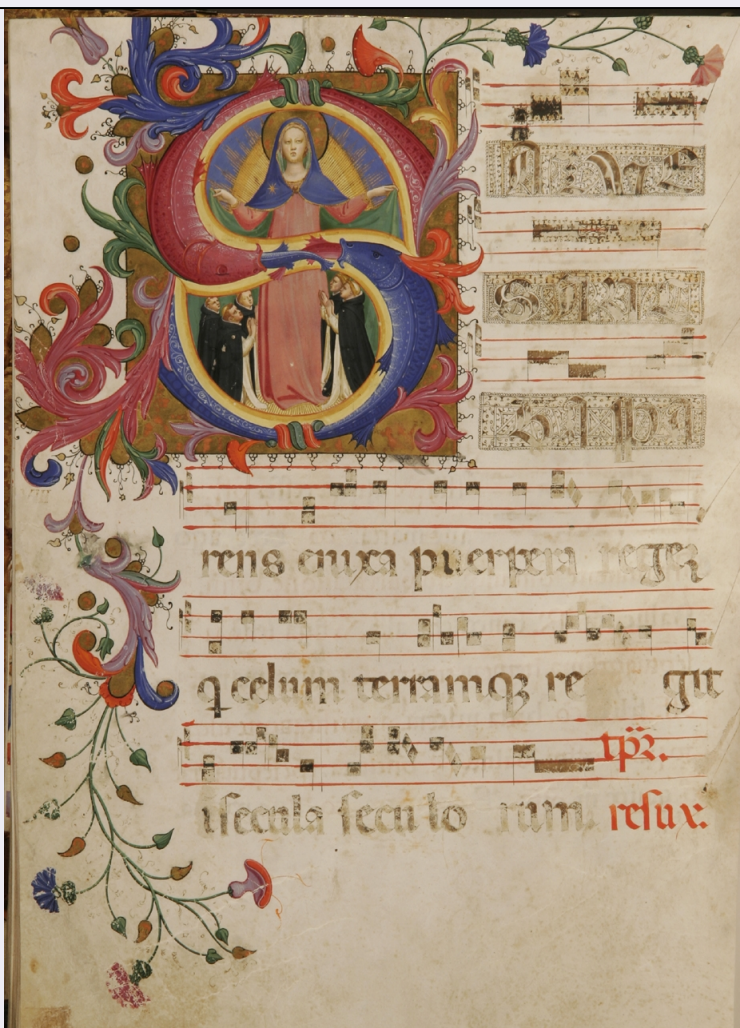 SALVE
SANC
TA PA
rens enixa puerpera regeʒ
q celum terramqʒ re git
tpr̄.
i secula seculo rum resur.